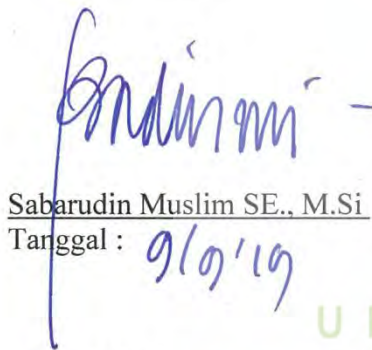 Sabarudin Muslim SE., M.Si
Tanggal : 9/9'19
U